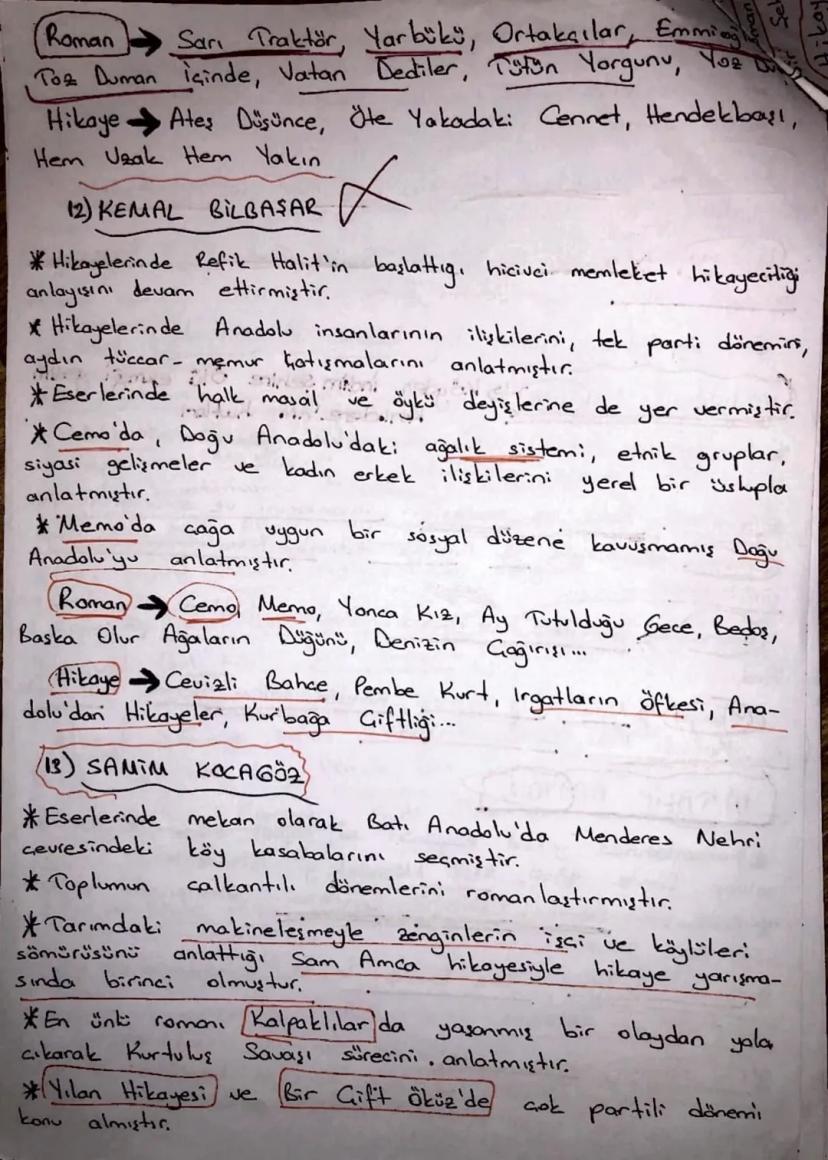 Roman → Sarı Traktör, Yarbükü, Ortakçılar, Emmioğlu
Toz Duman İçinde, Vatan Dediler, Tütün Yorgunu, Yoz
Hikaye → Ateş Düşünce, Öte Yakadaki Cennet, Hendekbaşı,
Hem Uzak Hem Yakın
12) KEMAL BİLBAŞAR
* Hikayelerinde Refik Halit'in başlattığı hicivci memleket hikayeciliği
anlayışını devam ettirmiştir.
* Hikayelerinde Anadolu insanlarının ilişkilerini, tek parti dönemini,
aydın tüccar-memur çatışmalarını anlatmıştır.
* Eserlerinde halk masal ve öykü deyişlerine de yer vermiştir.
* Cemo'da, Doğu Anadolu'daki ağalık sistemi, etnik gruplar,
siyasi gelişmeler ve kadın erkek ilişkilerini yerel bir üslupla
anlatmıştır.
* Memo'da çağa uygun bir sosyal düzene kavuşmamış Doğu
Anadolu'yu anlatmıştır.
Roman → Cemo, Memo, Yonca Kız, Ay Tutulduğu Gece, Bedoş,
Başka Olur Ağaların Düğünü, Denizin Çağırışı...
Hikaye → Cevizli Bahçe, Pembe Kurt, Irgatların Öfkesi, Ana-
dolu'dan Hikayeler, Kurbağa Çiftliği...
13) SAMİM KOCAGÖZ
* Eserlerinde mekan olarak Batı Anadolu'da Menderes Nehri
çevresindeki köy kasabalarını seçmiştir.
* Toplumun çalkantılı dönemlerini romanlaştırmıştır.
* Tarımdaki makineleşmeyle zenginlerin işçi ve köylüleri
sömürüsünü anlattığı Sam Amca hikayesiyle hikaye yarışma-
sında birinci olmuştur.
* En ünlü romanı Kalpaklılar'da yaşanmış bir olaydan yola
çıkarak Kurtuluş Savaşı sürecini anlatmıştır.
* Yılan Hikayesi ve Bir Çift Öküz'de çok partili dönemi
konu almıştır.